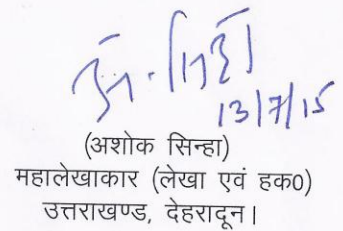 13/7/15
(अशोक सिन्हा)
महालेखाकार (लेखा एवं हक0)
उत्तराखण्ड, देहरादून।